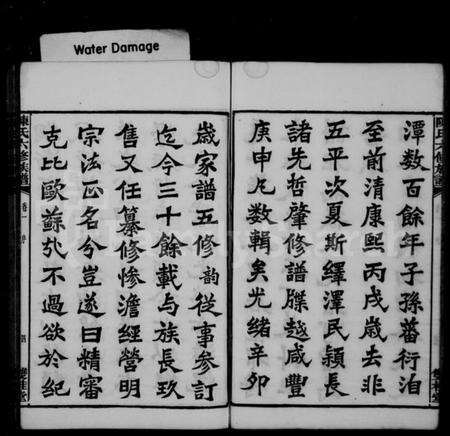 Water Damage
潭數百餘年子孫蕃衍洎
至前清康熙丙戌歲去非
五平次夏斯繹澤民穎長
諸先哲肇修譜牒越咸豐
庚申凡數輯矣光緒辛卯
歲家譜五修韵從事參訂
迄今三十餘載与族長玖
售又任纂修慘澹經營明
宗法正名分豈遂曰精審
克比歐蘇然不過欲於紀
陳氏六修族譜